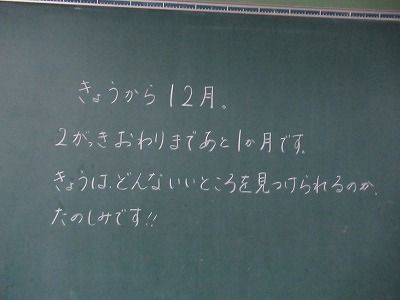 きょうから12月。
2がっきおわりまであと1か月です。
きょうは、どんないいところを見つけられるのか、
たのしみです!!